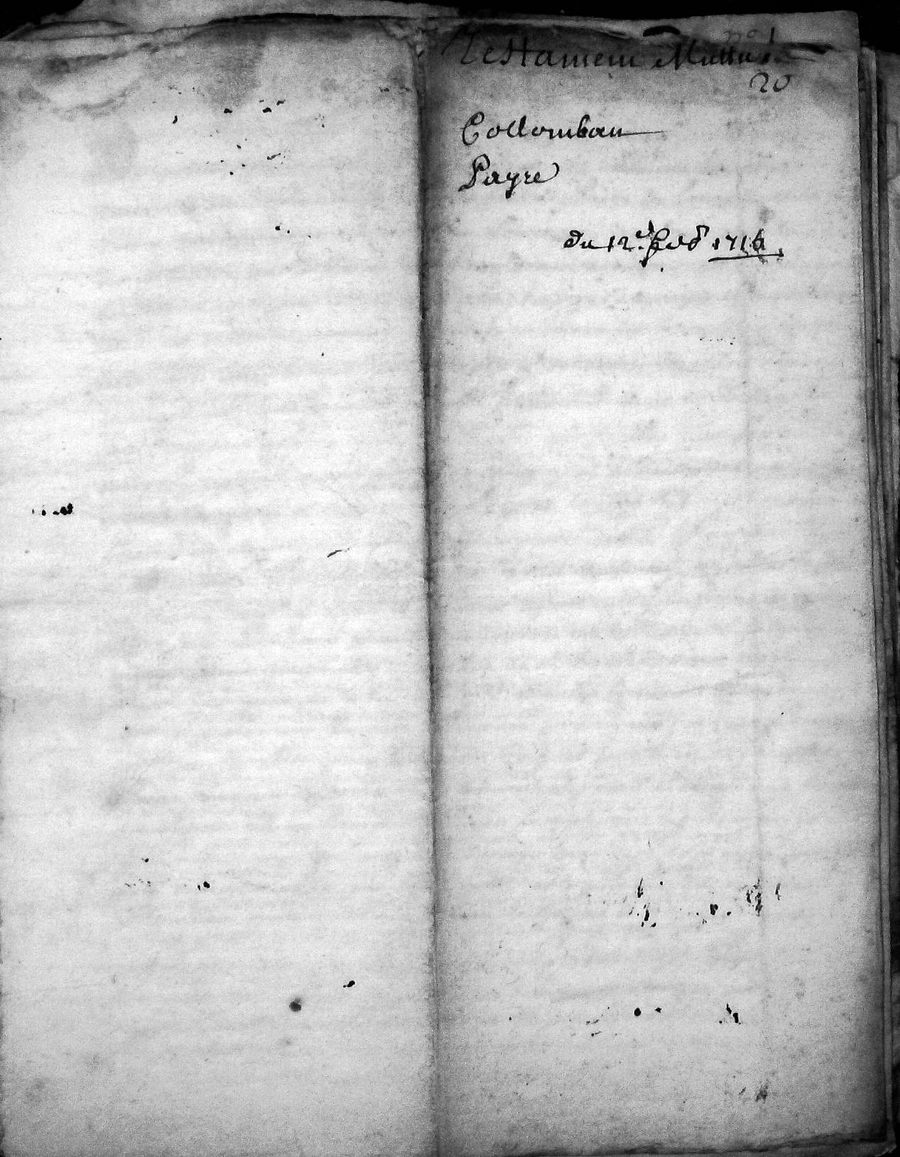 Testament Mutuel
20
Collomban
Payre
du 12e feb 1716